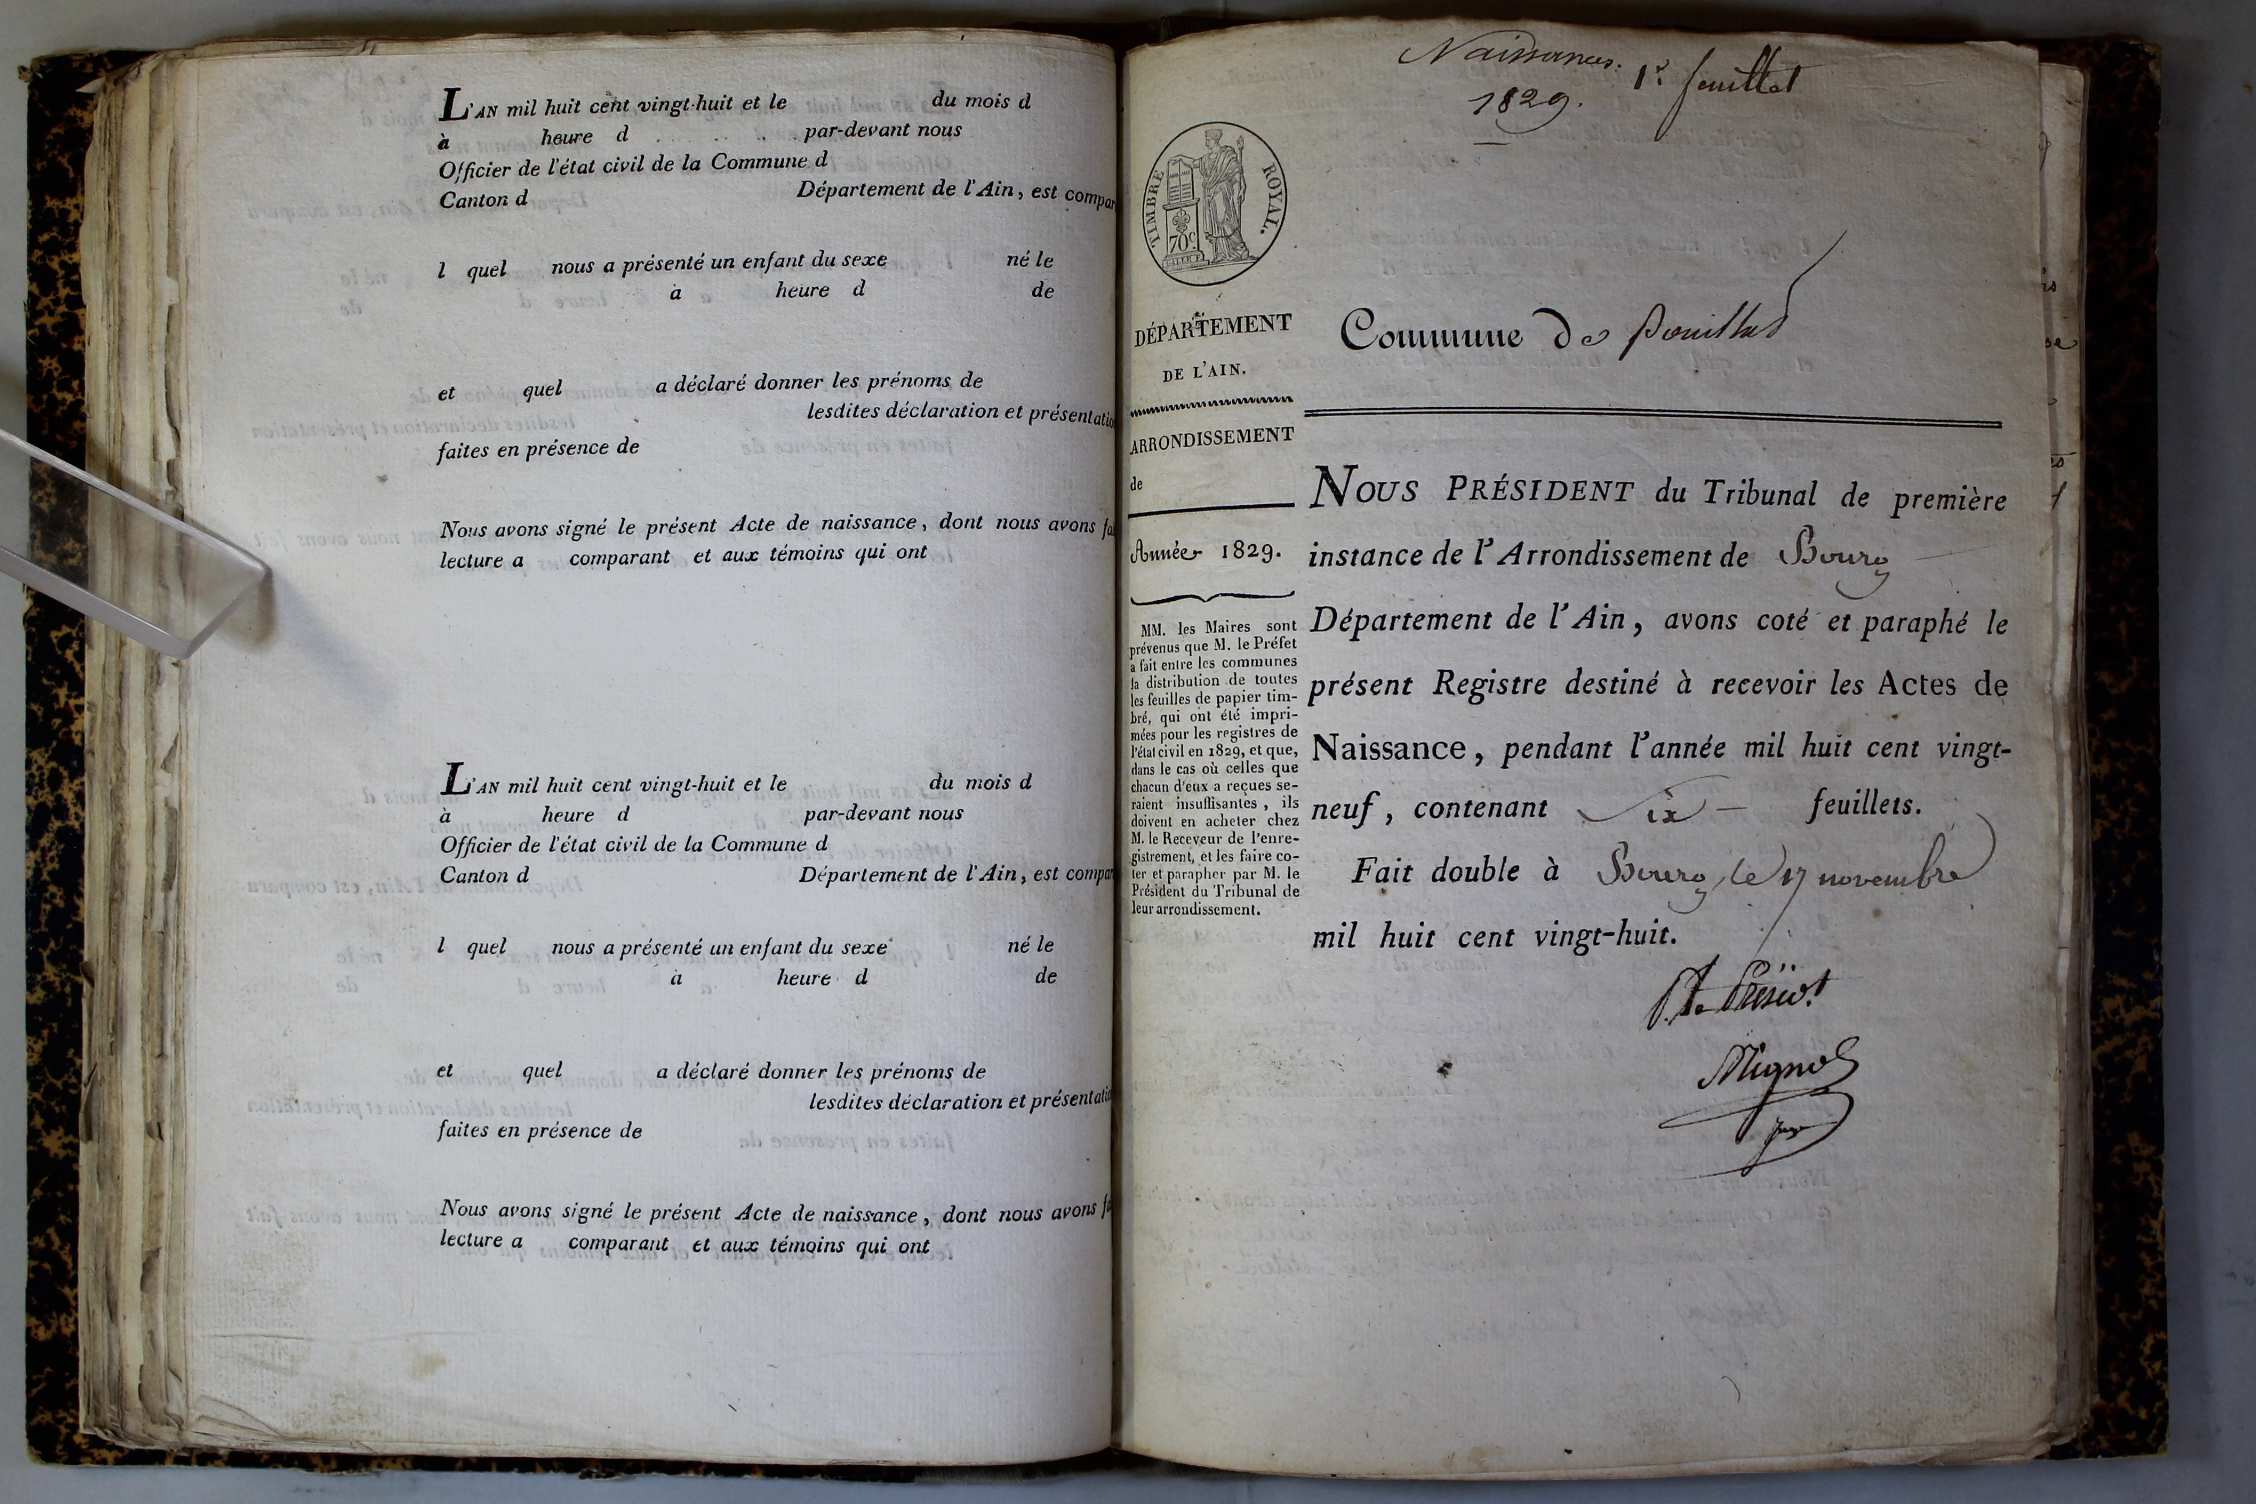 L'AN mil huit cent vingt-huit et le du mois d
à heure d par-devant nous
Officier de l'état civil de la Commune d
Canton d Département de l'Ain, est compar
l quel nous a présenté un enfant du sexe né le
à heure d de
et quel a déclaré donner les prénoms de
lesdites déclaration et présentatio
faites en présence de
Nous avons signé le présent Acte de naissance, dont nous avons fai
lecture a comparant et aux témoins qui ont
L'AN mil huit cent vingt-huit et le du mois d
à heure d par-devant nous
Officier de l'état civil de la Commune d
Canton d Département de l'Ain, est compar
l quel nous a présenté un enfant du sexe né le
à heure d de
et quel a déclaré donner les prénoms de
lesdites déclaration et présentatio
faites en présence de
Nous avons signé le présent Acte de naissance, dont nous avons fa
lecture a comparant et aux témoins qui ont
Naissances. 1r. feuillet
1829.
TIMBRE ROYAL.
70c.
DÉPARTEMENT
DE L'AIN.
ARRONDISSEMENT
de
Année 1829.
MM. les Maires sont
prévenus que M. le Préfet
a fait entre les communes
la distribution de toutes
les feuilles de papier tim-
bré, qui ont été impri-
mées pour les registres de
l'état civil en 1829, et que,
dans le cas où celles que
chacun d'eux a reçues se-
raient insuffisantes, ils
doivent en acheter chez
M. le Receveur de l'enre-
gistrement, et les faire co-
ter et parapher par M. le
Président du Tribunal de
leur arrondissement.
Commune de pouillat
NOUS PRÉSIDENT du Tribunal de première
instance de l'Arrondissement de Bourg
Département de l'Ain, avons coté et paraphé le
présent Registre destiné à recevoir les Actes de
Naissance, pendant l'année mil huit cent vingt-
neuf, contenant Six feuillets.
Fait double à Bourg, le 17 novembre
mil huit cent vingt-huit.
Mignot
Juge